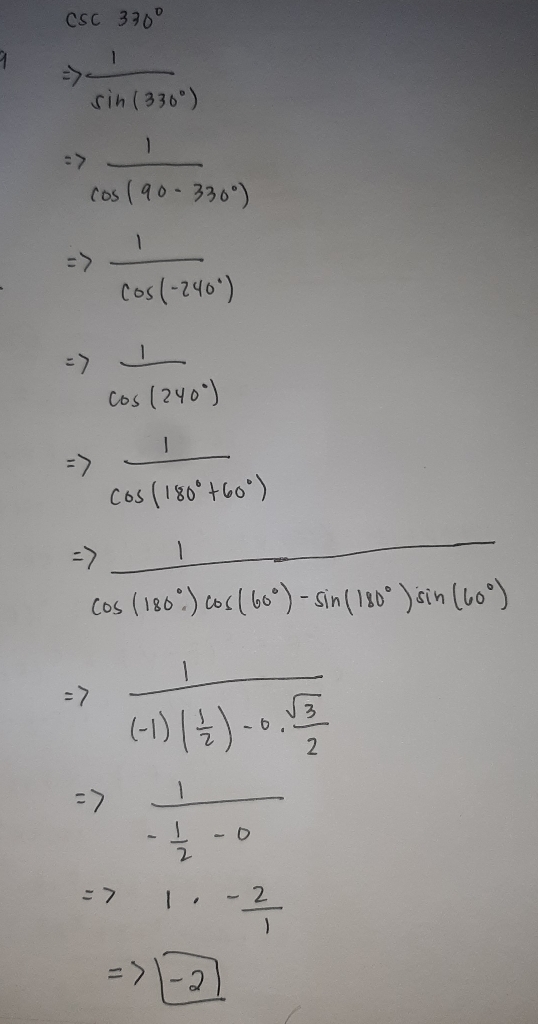 csc 330°
=> 1 / sin(330°)
=> 1 / cos(90 - 330°)
=> 1 / cos(-240°)
=> 1 / cos(240°)
=> 1 / cos(180° + 60°)
=> 1 / cos(180°) cos(60°) - sin(180°) sin(60°)
=> 1 / (-1)(1/2) - 0 · √3/2
=> 1 / -1/2 - 0
=> 1 · -2/1
=> -2